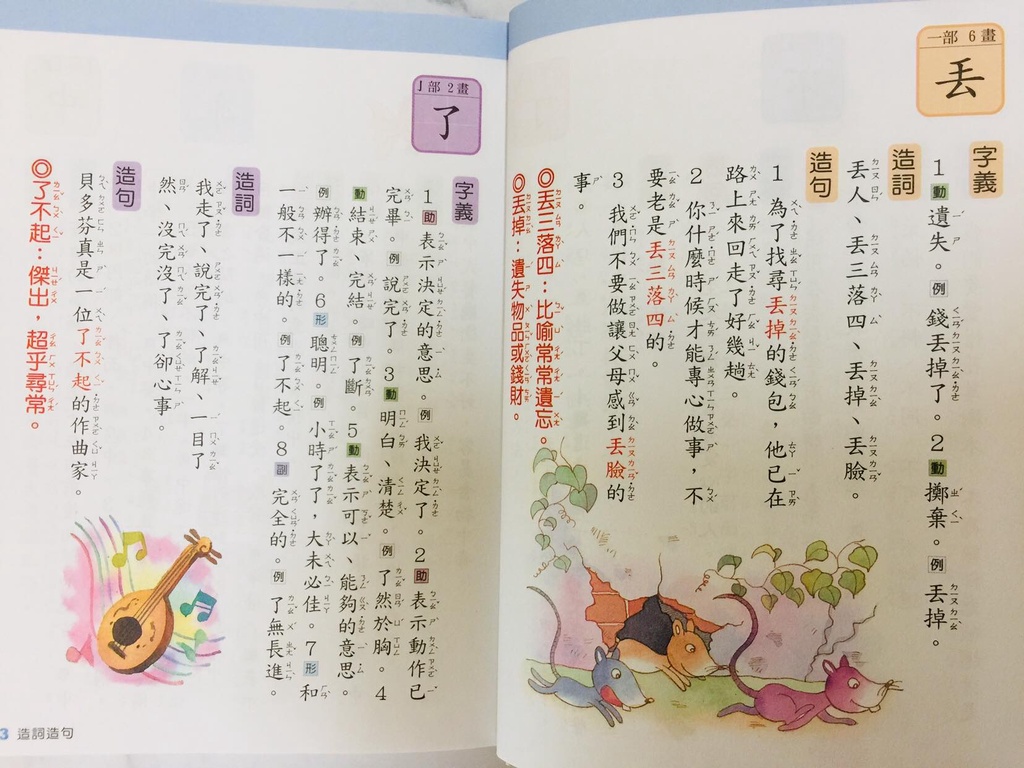 一部 6 畫
丟
字義
1 動 遺失。例 錢丟掉了。2 動 擲棄。例 丟掉。
造詞
丟人、丟三落四、丟掉、丟臉。
造句
1 為了找尋丟掉的錢包，他已在
路上來回走了好幾趟。
2 你什麼時候才能專心做事，不
要老是丟三落四的。
3 我們不要做讓父母感到丟臉的
事。
◎丟三落四：比喻常常遺忘。
◎丟掉：遺失物品或錢財。
亅部 2 畫
了
字義
1 助 表示決定的意思。例 我決定了。2 助 表示動作已
完畢。例 說完了。3 動 明白、清楚。例 了然於胸。4
動 結束、完結。例 了斷。5 動 表示可以、能夠的意思。
例 辦得了。6 形 聰明。例 小時了了，大未必佳。7 形 和
一般不一樣的。例 了不起。8 副 完全的。例 了無長進。
造詞
我走了、說完了、了解、一目了
然、沒完沒了、了卻心事。
造句
貝多芬真是一位了不起的作曲家。
◎了不起：傑出，超乎尋常。
3 造詞造句